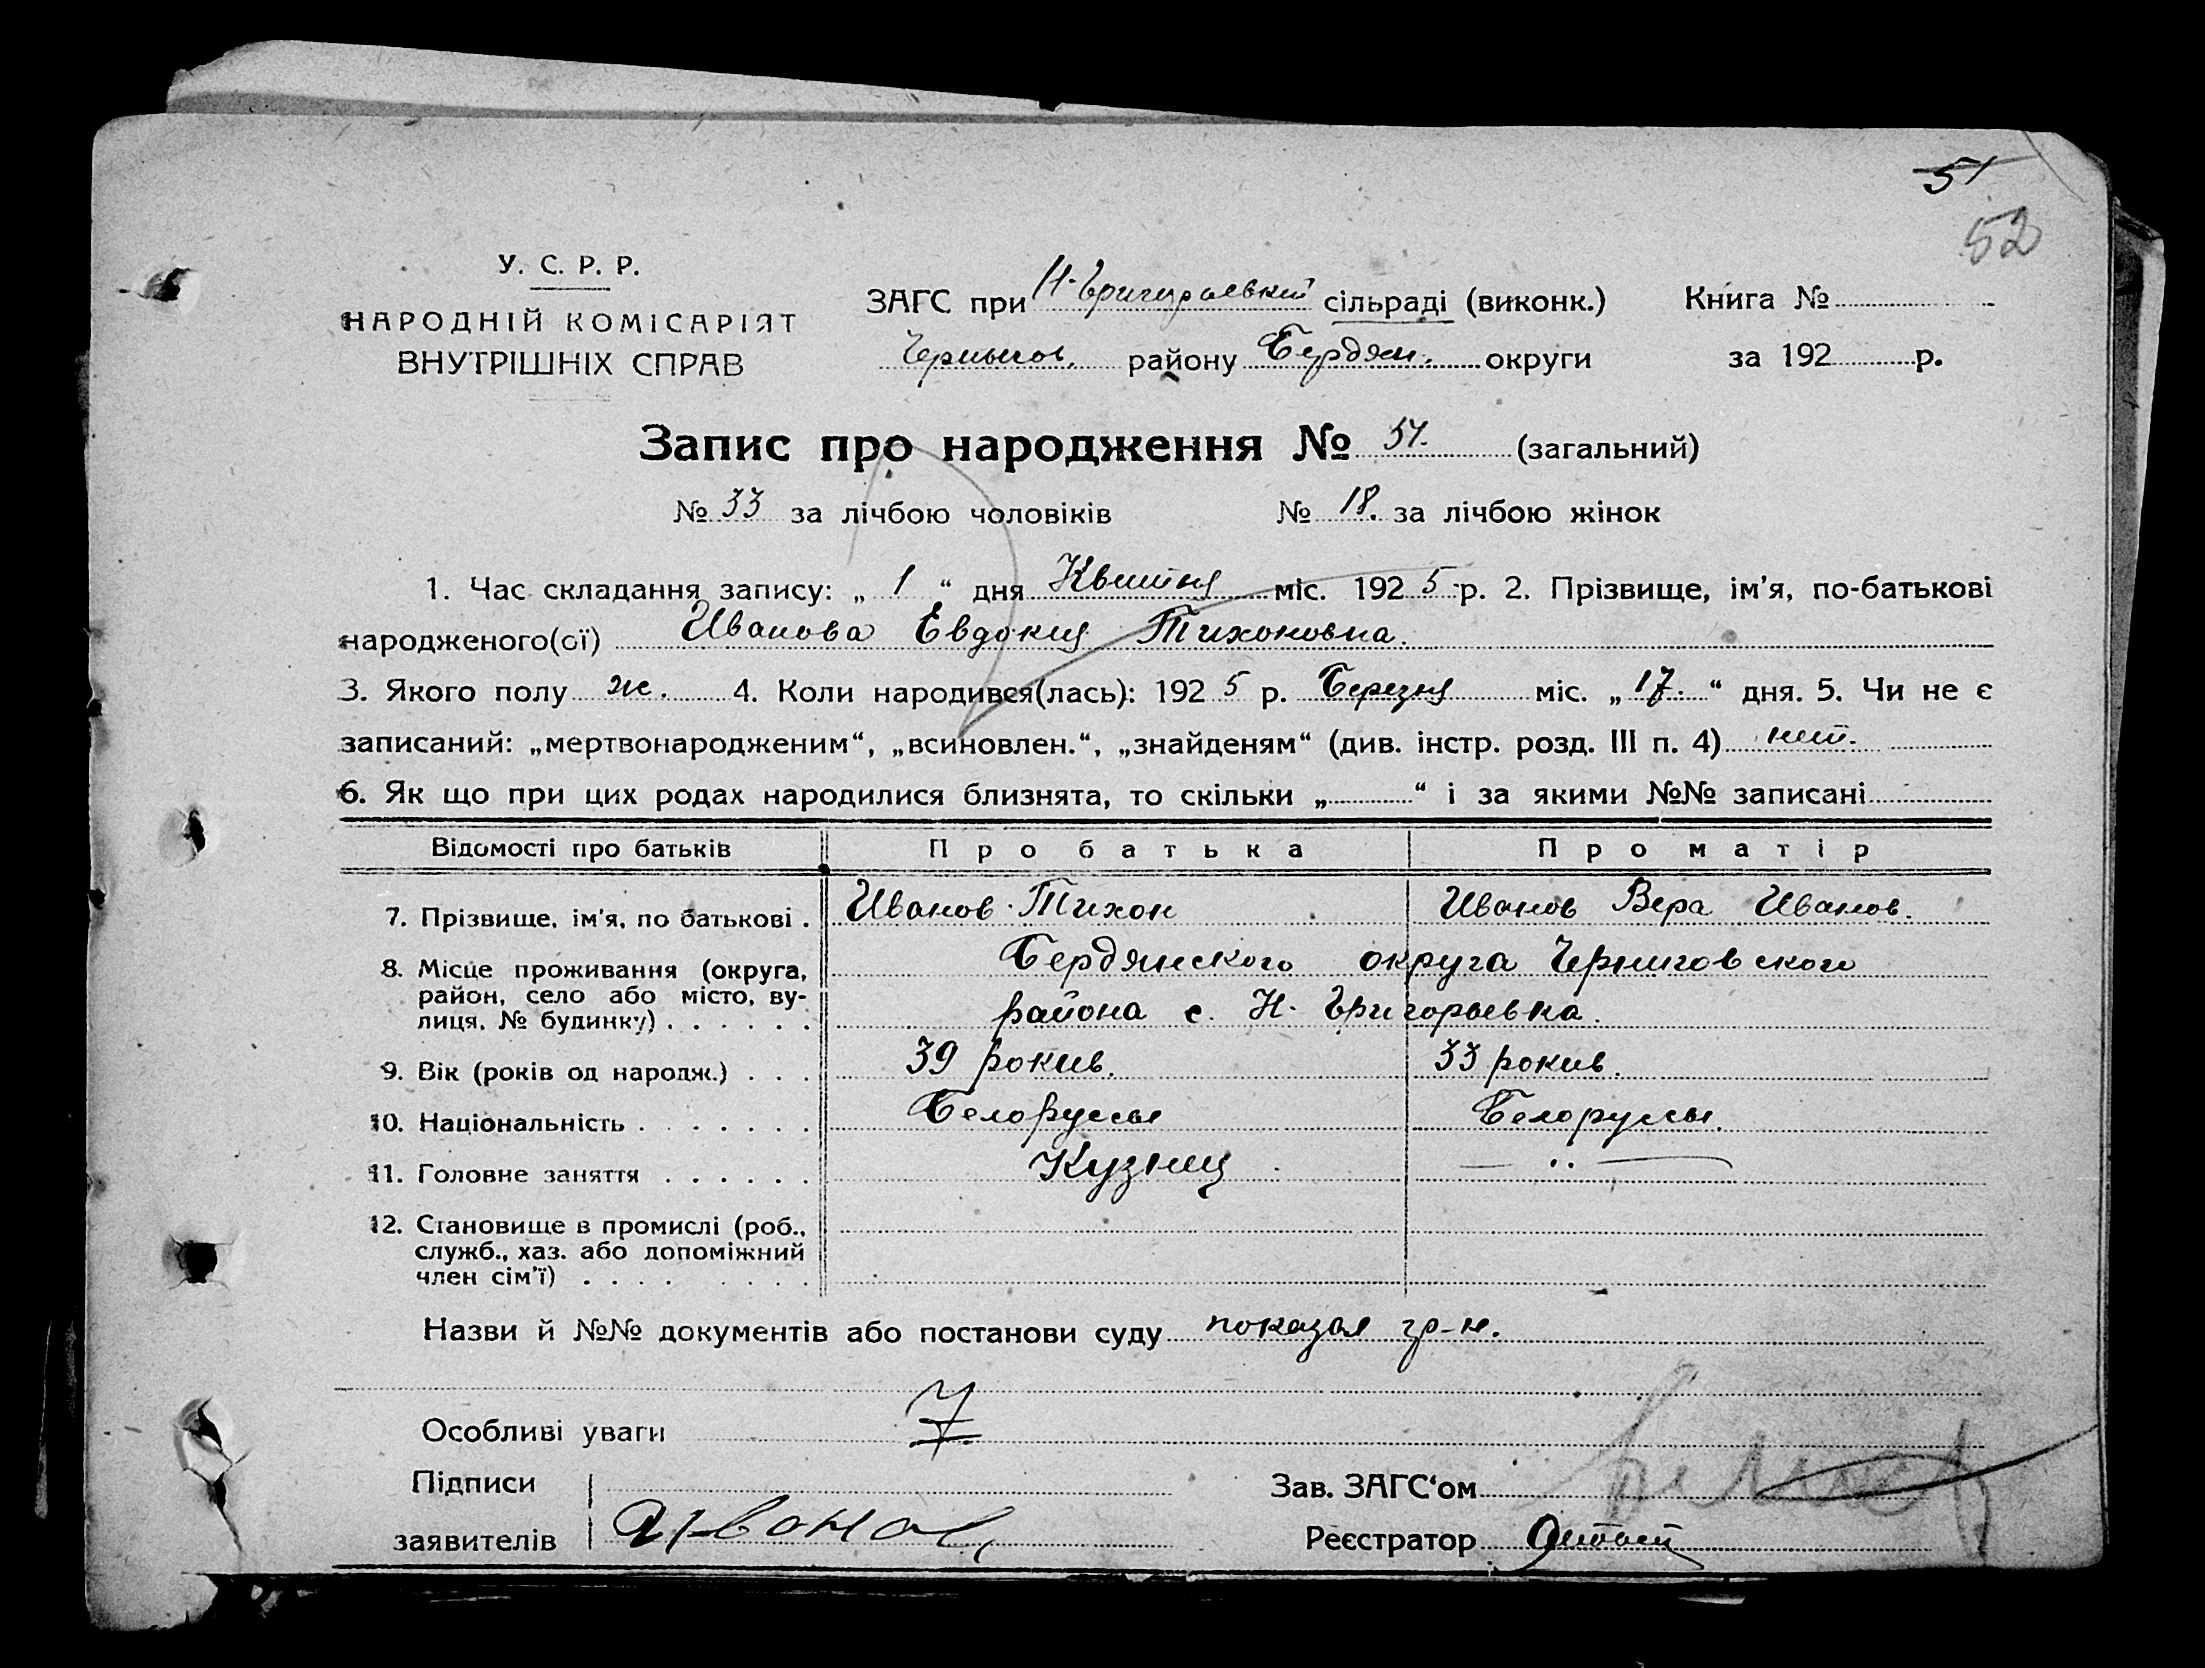 51
52
У. С. Р. Р.
НАРОДНІЙ КОМІСАРІЯТ
ВНУТРІШНІХ СПРАВ
ЗАГС при Н-Григорьевкий сільраді (виконк.) Книга №
Чернигов. району Бердян. округи за 192 р.
Запис про народження № 51. (загальний)
№ 33 за лічбою чоловіків № 18. за лічбою жінок
1. Час складання запису: „ 1 “ дня Квитня міс. 192 5 р. 2. Прізвище, ім'я, по-батькові
народженого(ої) Иванова Евдокия Тихоновна.
3. Якого полу ж. 4. Коли народився(лась): 192 5 р. Березня міс. „ 17. “ дня. 5. Чи не є
записаний: „мертвонародженим“, „всиновлен.“, „знайденям“ (див. інстр. розд. III п. 4) нит.
6. Як що при цих родах народилися близнята, то скільки „ “ і за якими №№ записані
Відомості про батьків Про батька Про матір
7. Прізвище, ім'я, по батькові . Иванов Тихон Иванов Вера Иванов.
8. Місце проживання (округа, район, село або місто, вулиця, № будинку) . . . . . . Бердянского округа Черниговского
района с. Н. Григорьевка.
9. Вік (років од народж.) . . . 39 рокив. 33 рокив.
10. Національність . . . . . . . Белоруссы Белоруссы.
11. Головне заняття . . . . . . Кузнец — " —
12. Становище в промислі (роб., служб., хаз. або допоміжний член сім'ї) . . . . . . . .
Назви й №№ документів або постанови суду показал гр-н.
Особливі уваги
Підписи
заявителів Иванов
Зав. ЗАГС'ом
Реєстратор